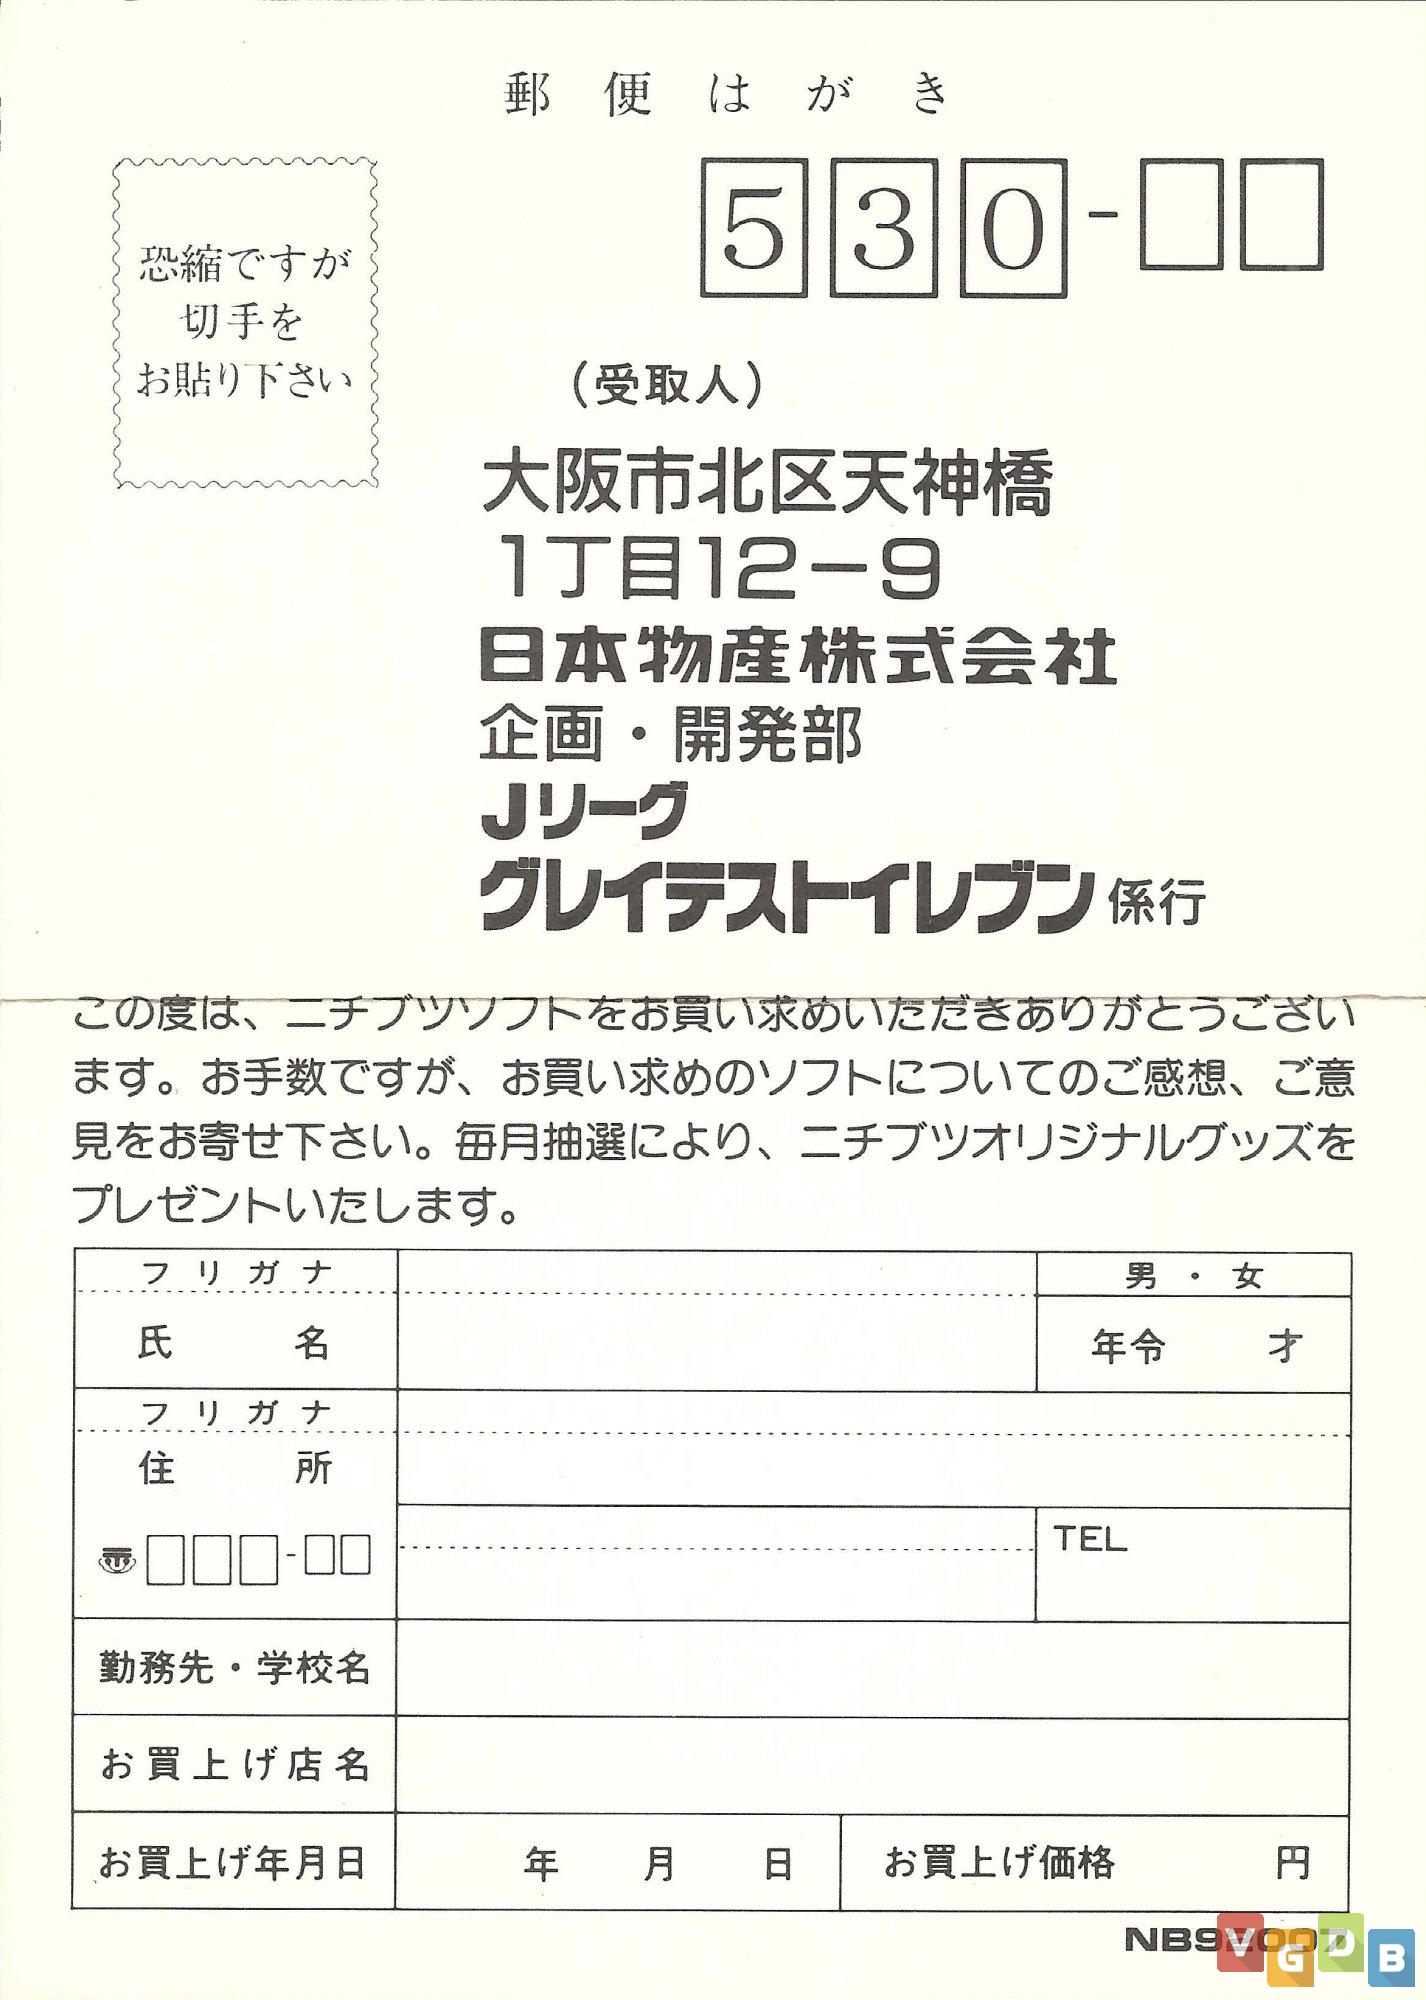 郵便はがき
530-
恐縮ですが
切手を
お貼り下さい
(受取人)
大阪市北区天神橋
1丁目12-9
日本物産株式会社
企画・開発部
Jリーグ
グレイテストイレブン係行
この度は、ニチブツソフトをお買い求めいただきありがとうござい
ます。お手数ですが、お買い求めのソフトについてのご感想、ご意
見をお寄せ下さい。毎月抽選により、ニチブツオリジナルグッズを
プレゼントいたします。
フリガナ
男・女
氏名
年令 才
フリガナ
住所
TEL
勤務先・学校名
お買上げ店名
お買上げ年月日 年 月 日 お買上げ価格 円
NB92007
VGDB